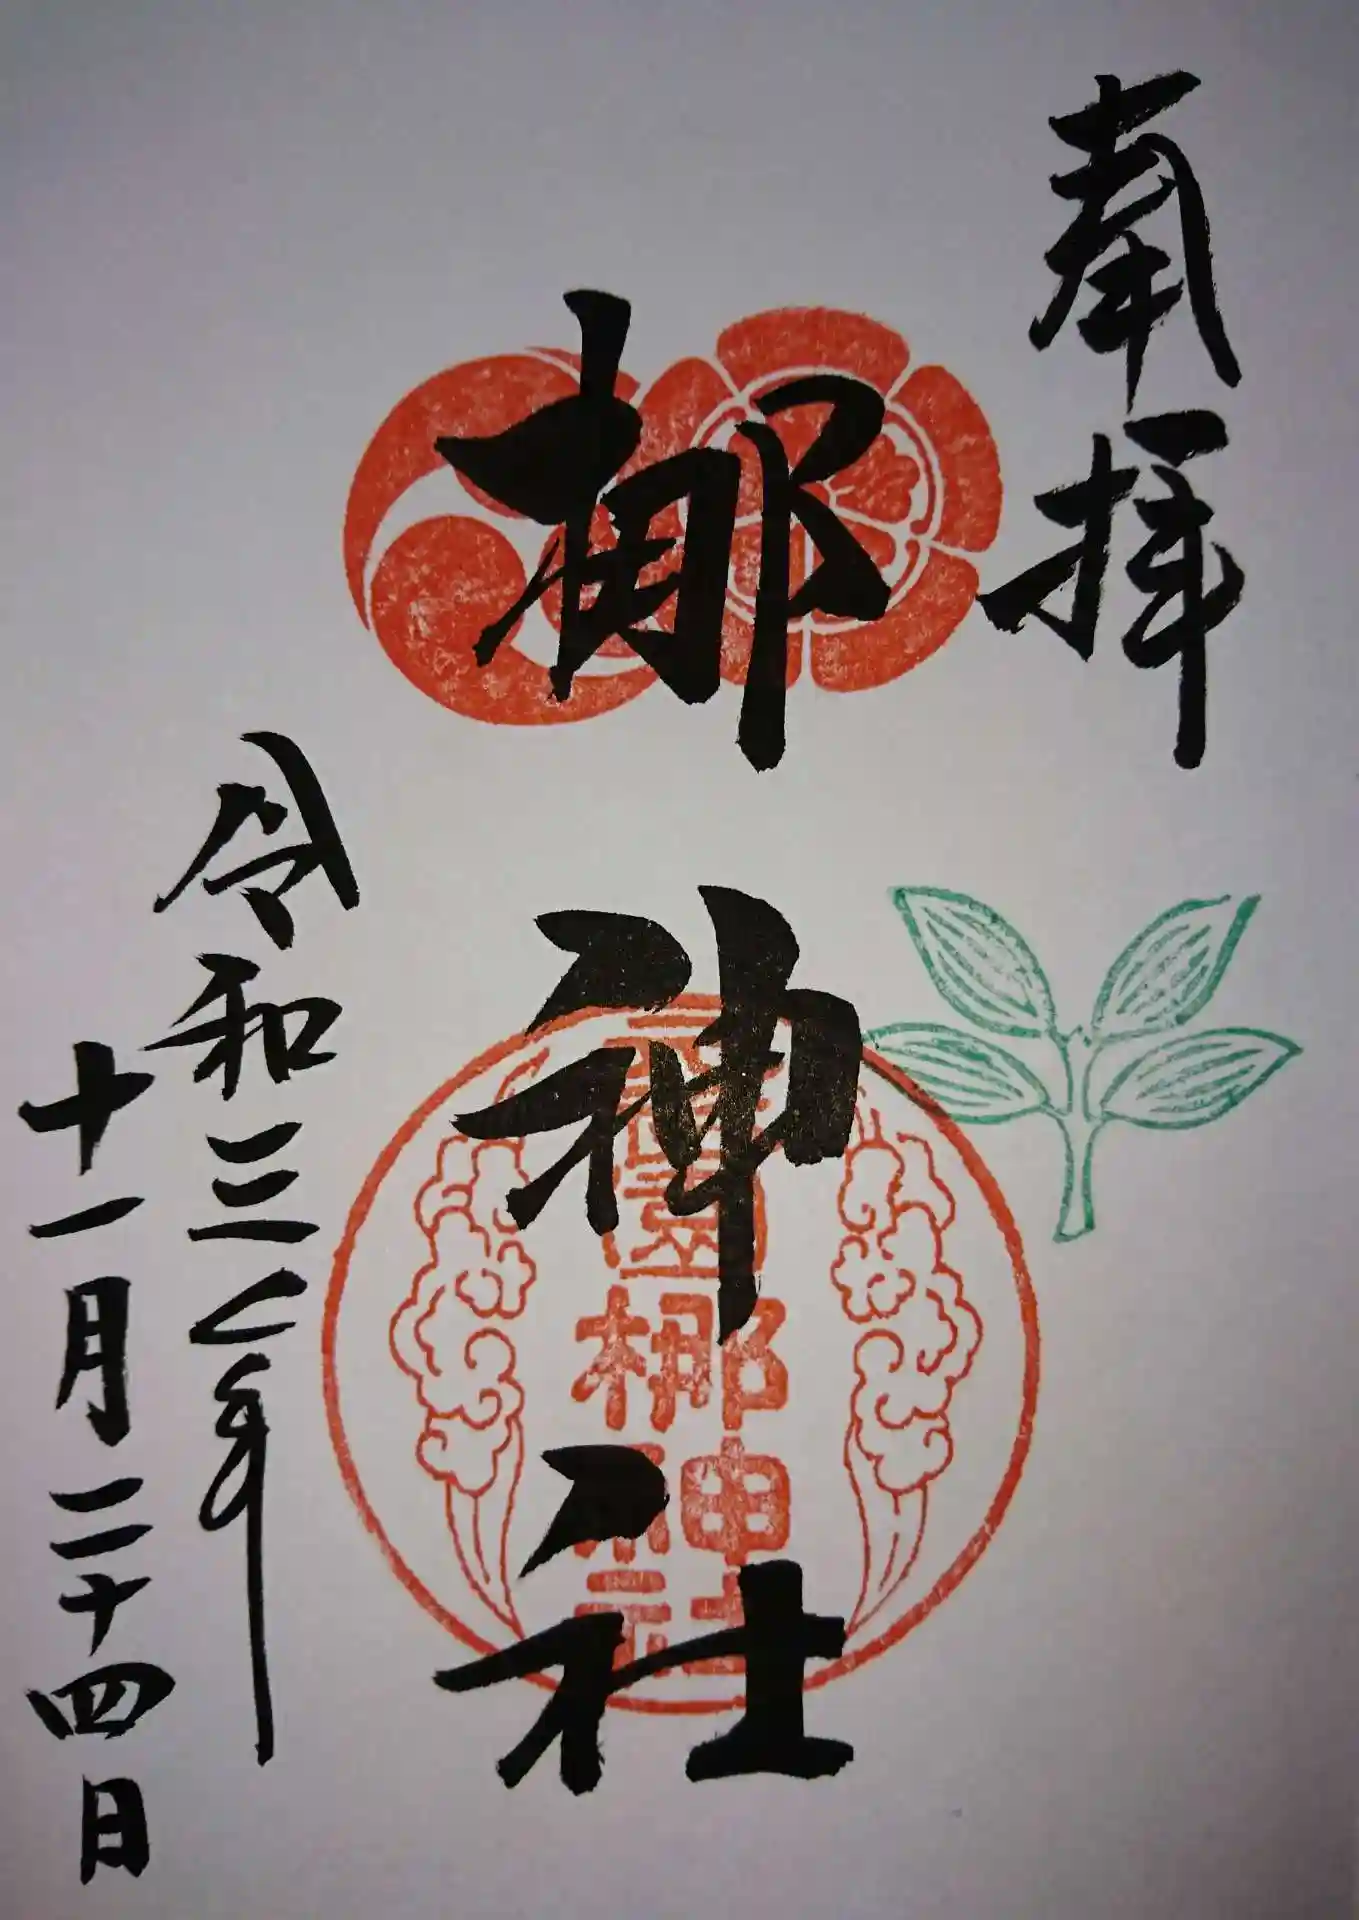 奉拝
梛神社
令和三年
十一月二十四日
梛神社